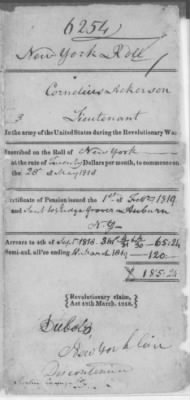 6254
New York Roll
Cornelius Ackerson
Lieutenant
In the army of the United States during the Revolutionary War
Inscribed on the Roll of New York
at the rate of Twenty Dollars per month, to commence on
the 28th of May 1818
Certificate of Pension issued the 1st of Feby 1819
and Sent to Judge Grover Auburn
N. Y.
Arrears to 4th of Sept 1818 65.24
Semi-anl. all'ce ending 4 March 1819 120
$ 185.24
Revolutionary claim,
Act 18th March, 1818.
Dubois
New York Line
Discontinued